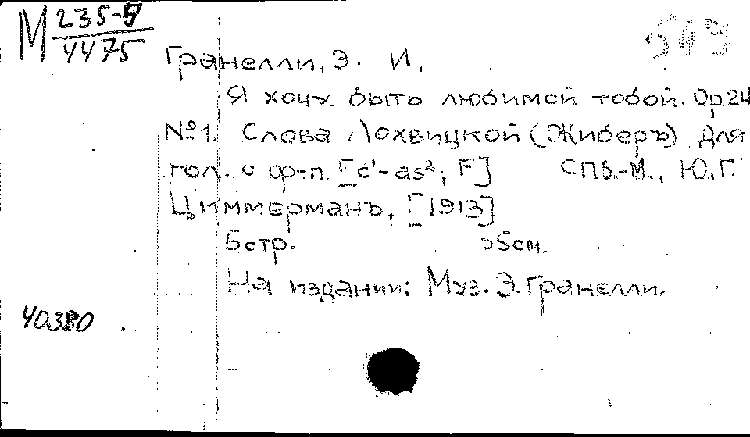 М 235-5
4475
Гранелли, Э. И.
Я хочу быть любимой тобой. Op24
№1. Слова Лохвицкой (Жиберъ) Для
гол. с ф-п. [c¹-as²; F] СПБ.-М., Ю.Г.
Циммерманъ, [1913]
5стр. 35см.
На издании: Муз. Э. Гранелли.
40380